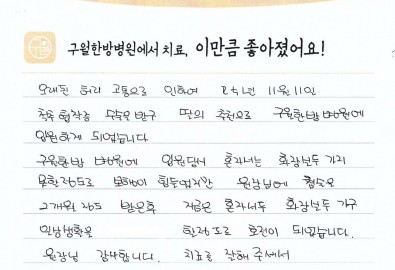 구월한방병원에서 치료, 이만큼 좋아졌어요!
오래된 허리 고통으로 인하여 11월 11일
척추 협착증 딸의 추천으로 구월한방 병원에
입원하게 되었습니다
구월한방 병원에 혼자서는 화장실도 가지
못할정도로 보행이 힘들었지만 원장님에
2개월 정도 받은후 지금은 혼자서도 화장실도 가구
할정도로 호전이 되었습니다.
원장님 감사합니다. 치료를 잘해 주셔서